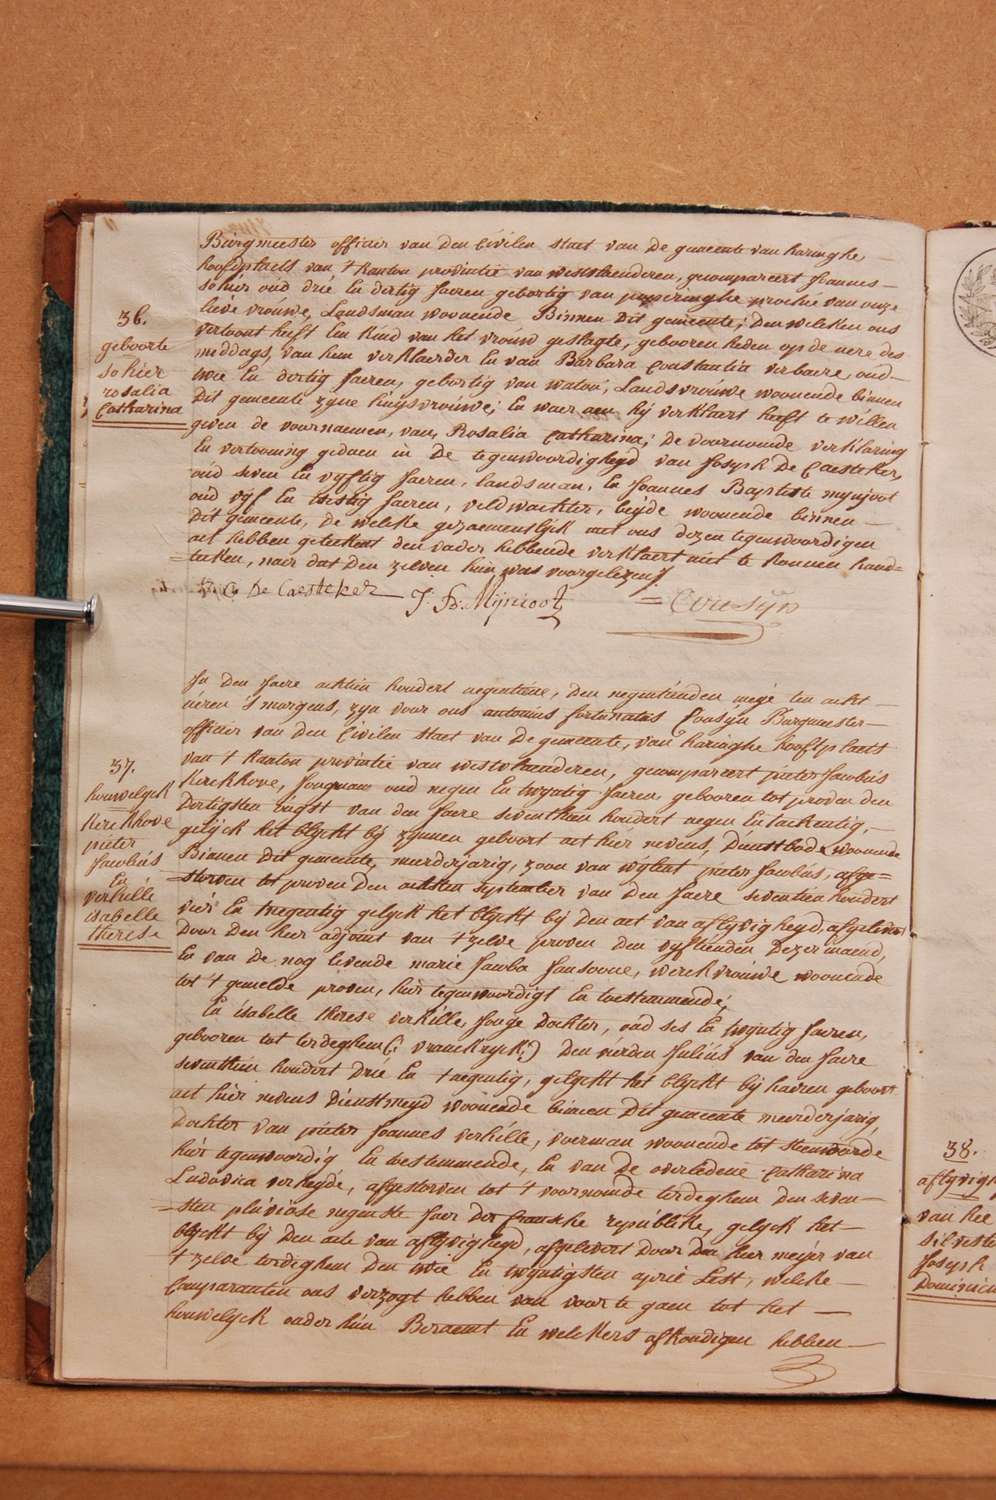 Burgmeester officier van den Civilen staet van de gemeente van haringhe
hoofdplaets van 't Kanton provintie van westvlaenderen, gecompareert Joannes
sohier oud drie en dertig Jaeren gebortig van poperinghe prochie van onze
lieve vrouwe, Landsman woonende Binnen dit gemeente; den welken ons
vertoont heeft een kind van het vrouw geslagte, gebooren heden op de uere des
middags, van hem verklaerder en van Barbara Constantia verbaere, oud
twie en dertig Jaeren, gebortig van watou, Landsvrouwe woonende binnen
dit gemeente zyne huysvrouwe; en waer aen hy verklaert heeft te willen
geven de voornaemen, van, Rosalia Catharina; de voornoemde verklaring
en vertooning gedaen in de tegenwoordigheyd van Joseph De Caesteker,
oud seven en vyftig Jaeren, landsman, en Joannes Baptiste mynjoot
oud vyf en Jaeren, veldwachter, beyde woonende binnen
dit gemeente, de welke gezaementlyk met ons dezen tegenwoordigen
act hebben geteekent den vader hebbende verklaert niet te konnen hand=
=teeken, naer dat den zelven hun was voorgelezen
36.
geboorte
sohier
rosalia
Catharina
De Caesteker J: B: Mijnioot Cousyn
In den Jaere achtien hondert negentiene, den negentienden meye ten acht
ueren 's morgens, zyn voor ons antonius fortunatus Cousyn Burgmeester
officier van den Civilen staet van de gemeente, van haringhe hooftplaets
van 't Kanton provintie van westvlaenderen, gecompareert pieter Jacobus
Kerckhove, Jongman oud negen en twyntig Jaeren, gebooren tot proven den
dertigsten ougst van den Jaere seventhien hondert negen en tachentig,
gelyck het blyckt by zynnen geboort act hier nevens, dienstbode woonende
Binnen dit gemeente, meerderjarig, zoon van wylent pieter Jacobus, afge=
=storven tot proven den achsten september van den Jaere seventien hondert
vier en tnegentig gelyck het blyckt by den act van aflyvigheyd, afgelevert
door den heer adjoint van 't zelve proven den vyfthienden dezer maend,
en van de nog levende marie Jacoba Jansoone, werckvrouwe woonende
tot 't gemelde proven, hier tegenwoordigt en toestemmende;
En isabelle therese verhille, Jonge dochter, oud ses en twyntig Jaeren,
gebooren tot terdeghem (: vranckryck:) den vierden Julius van den Jaere
seventhien hondert drie en tnegentig, gelyckt het blyckt by haeren geboort
act hier nevens dienstmeyd woonende binnen dit gemeente meerderjarig,
dochter van pieter Joannes verhille, voerman woonende tot steenvoorde
hier tegenwoordig en toestemmende, en van de overledene Catharina
Ludovica verheyde, afgestorven tot 't voornoemde terdeghem den seven=
=sten pluviose negenste Jaer der fransche republike, gelyck het
blyckt by den acte van aflyvigheyd, afgelevert door den heer meyer van
't zelve terdeghem den twie en twyntigsten april Lest, welcke
Comparanten ons verzogt hebben van voor te gaen tot het
houwelyck onder hun Beraemt en welckers afkondigen hebben
37.
houwelyck
Kerckhove
pieter
Jacobus
en
verhille
isabelle
therese
38.
aflyvigh
van hee
silveste
Joseph
Dominicu